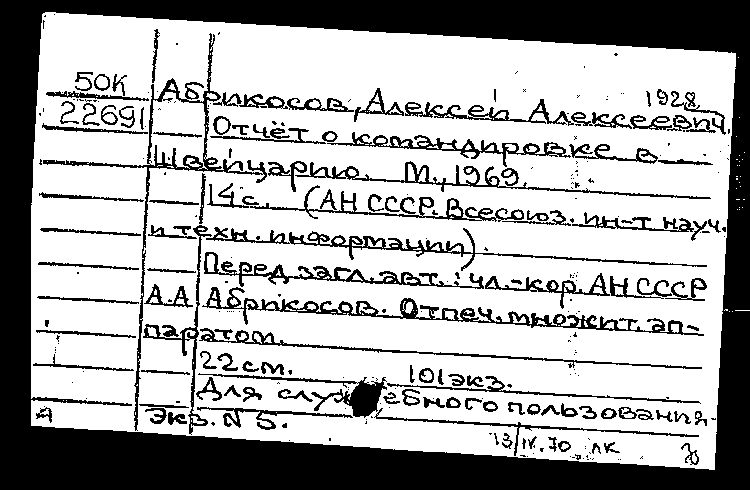 50К
22691
1928
Абрикосов, Алексей Алексеевич.
Отчёт о командировке в
Швейцарию. М., 1969.
14с. (АН СССР. Всесоюз. ин-т науч.
и техн. информации).
Перед загл. авт.: чл.-кор. АН СССР
А.А Абрикосов. Отпеч. множит. ап-
паратом.
22см. 101экз.
Для служебного пользования.
Экз. N 5.
А
13/IV.70 лк